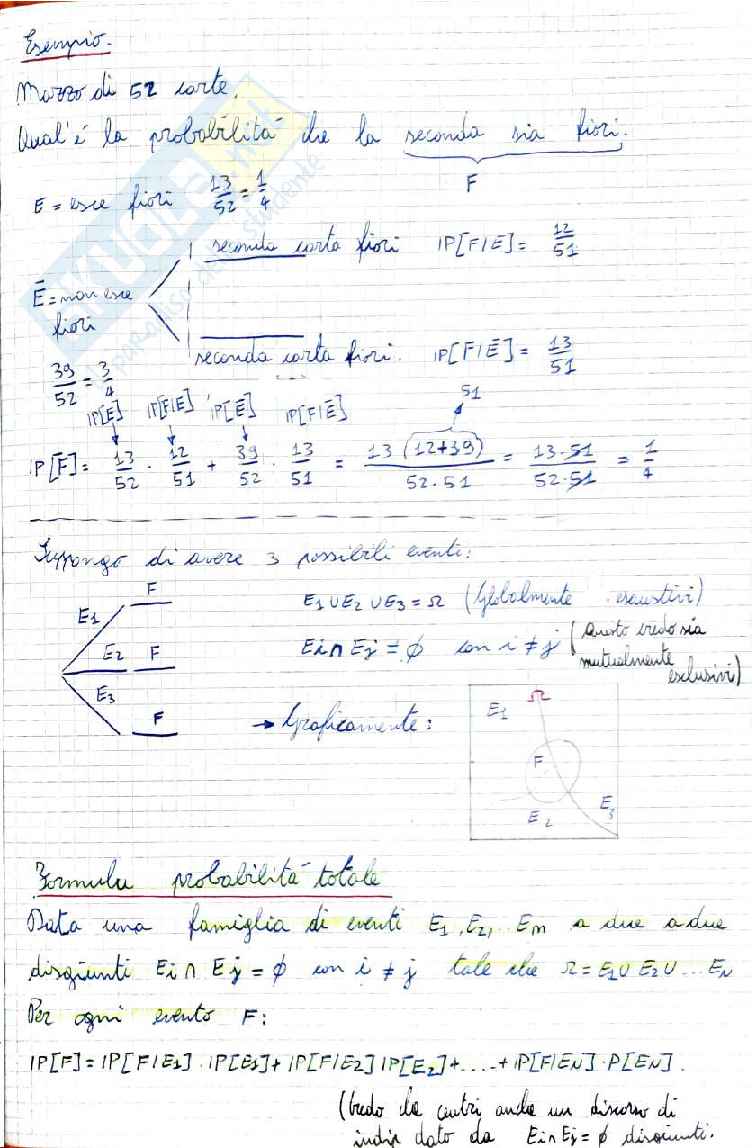 Esempio.
Mazzo di 52 carte.
Qual'è la probabilità che la seconda sia fiori.
F
E = esce fiori 13/52 = 1/4
seconda carta fiori IP[F/E] = 12/51
Ē = non esce
fiori
seconda carta fiori. IP[F/Ē] = 13/51
39/52 = 3/4
51
IP[E] IP[F/E] IP[Ē] IP[F/Ē]
P[F] = 13/52 · 12/51 + 39/52 · 13/51 = 13(12+39)/52·51 = 13·51/52·51 = 1/4
Suppongo di avere 3 possibili eventi:
E1 F
E1 ∪ E2 ∪ E3 = Ω (Globalmente esaustivi)
E2 F
Ei ∩ Ej = ∅ con i ≠ j (questo credo sia
mutualmente
esclusivi)
E3
F
→ Graficamente:
Ω
E1
F
E3
E2
Formula probabilità totale
Data una famiglia di eventi E1, E2, Em a due a due
disgiunti Ei ∩ Ej = ∅ con i ≠ j tale che Ω = E1 ∪ E2 ∪ ... EN
Per ogni evento F:
IP[F] = IP[F/E1] · IP[E1] + IP[F/E2] IP[E2] + .... + IP[F/EN] · P[EN].
(credo che centri anche un discorso di
indip dato da Ei ∩ Ej = ∅ disgiunti.
SKUOLA.net
il paradiso dello studente